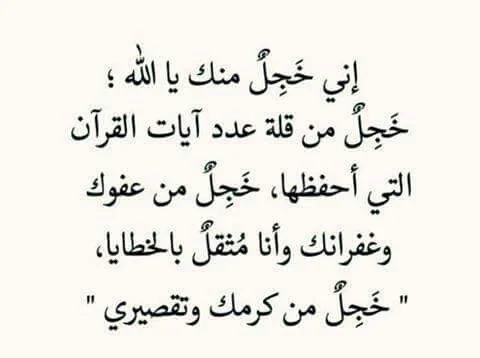 إني خَجِلٌ منك يا الله ؛
خَجِلٌ من قلة عدد آيات القرآن
التي أحفظها، خَجِلٌ من عفوك
وغفرانك وأنا مُثقلٌ بالخطايا،
" خَجِلٌ من كرمك وتقصيري "